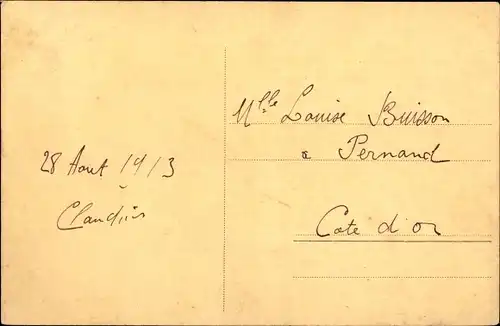 28 Aout 1913
Claudius
Mlle Louise Buisson
a Pernand
Cote d'or